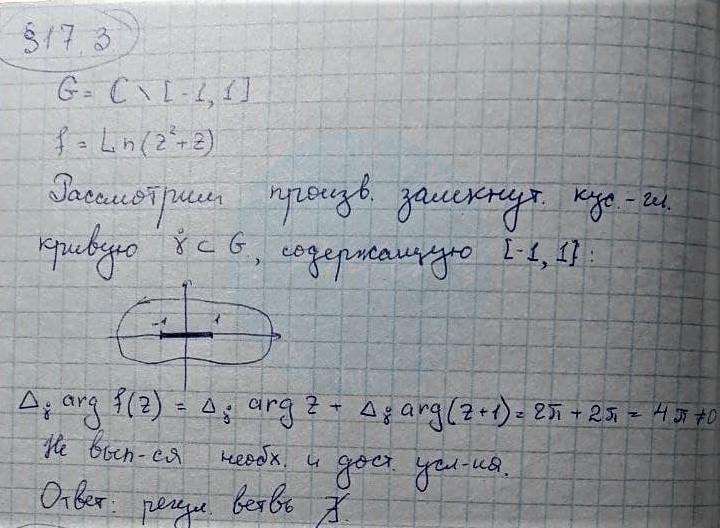 §17.3
G = C \ [-1, 1]
f = Ln(z²+z)
Рассмотрим произв. замкнут. кус.-гл.
кривую γ̊ ⊂ G, содержащую [-1, 1]:
-1 1
Δγ̊ arg f(z) = Δγ̊ arg z + Δγ̊ arg(z+1) = 2π + 2π = 4π ≠ 0
Не вып-ся необх. и дост. усл-ия.
Ответ: регул. ветвь ∄.